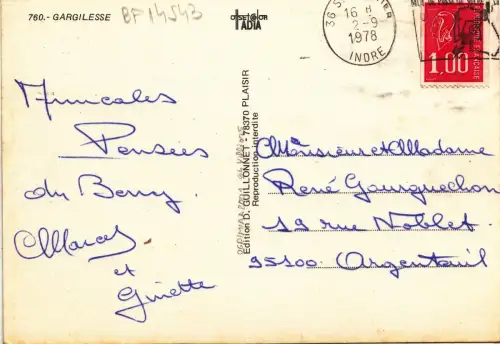 760.- GARGILESSE
BF 14543
offset@color
IADIA
16 H
2-9
1978
INDRE
1,00
Amicales
Pensées
du Berry
Marcel
et
Ginette
Edition D. GUILLONNET - 78370 PLAISIR
Reproduction interdite
Monsieur et Madame
René Gourguechon
19 rue Noblet
95100 Argenteuil